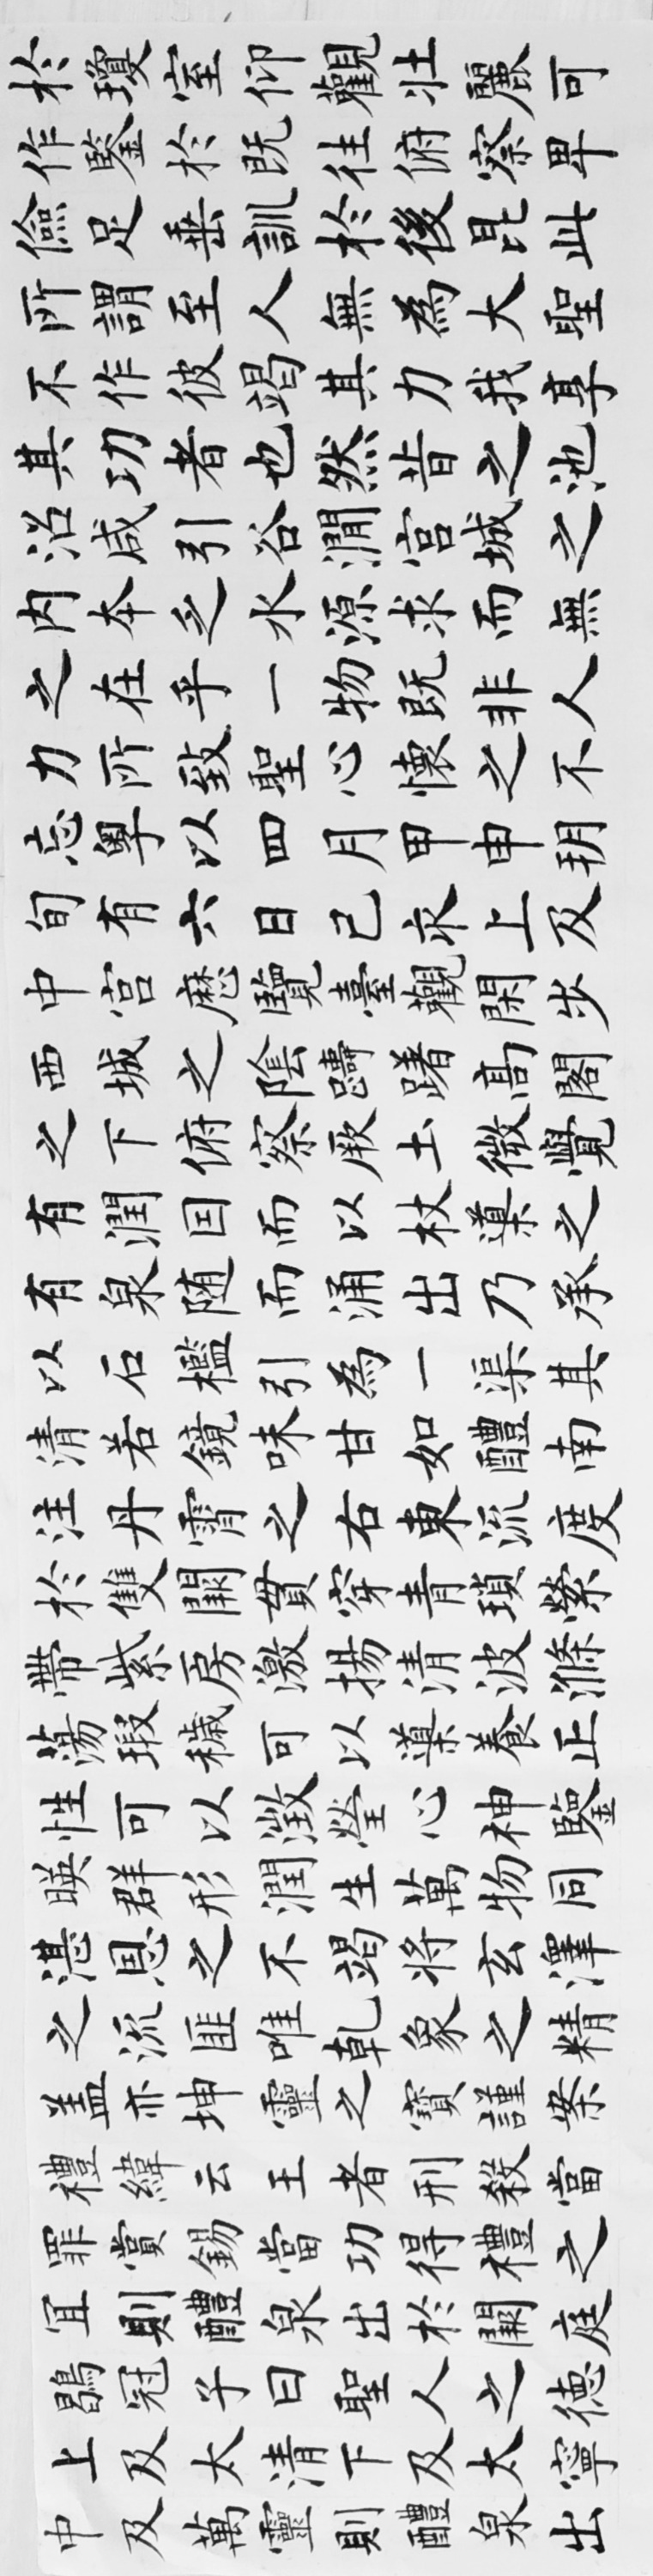 於瓊室仰觀壯麗可
作鑒於既往俯察卑
儉足垂訓於後昆此
所謂至人無為大聖
不作彼竭其力我享
其功者也然昔之池
沼咸引谷澗宮城之
内本乏水源求而無
之在乎一物既非人
力所致聖心懷之不
忘粤以四月甲申玥
旬有六日己㐲上及
中宮歷覽臺觀閑步
西城之陰躊躇高閣
之下俯察厥土微覺
有潤因而以杖導之
有泉随而涌出乃承
以石檻引為一渠其
清若鏡味甘如醴南
注丹霄之右東流度
於雙闕貫穿青瑣縈
帶紫房激揚清波滌
蕩瑕穢可以導養正
性可以澂瑩心神鑒
暎群形潤生萬物同
湛恩之不竭將玄澤
之流匪唯乾象之精
盖亦坤靈之寶謹案
禮緯云王者刑殺當
罪賞錫當功得禮之
宜則醴泉出於闕庭
鶡冠子曰聖人之德
上及太清下及太寧
中及萬靈則醴泉出